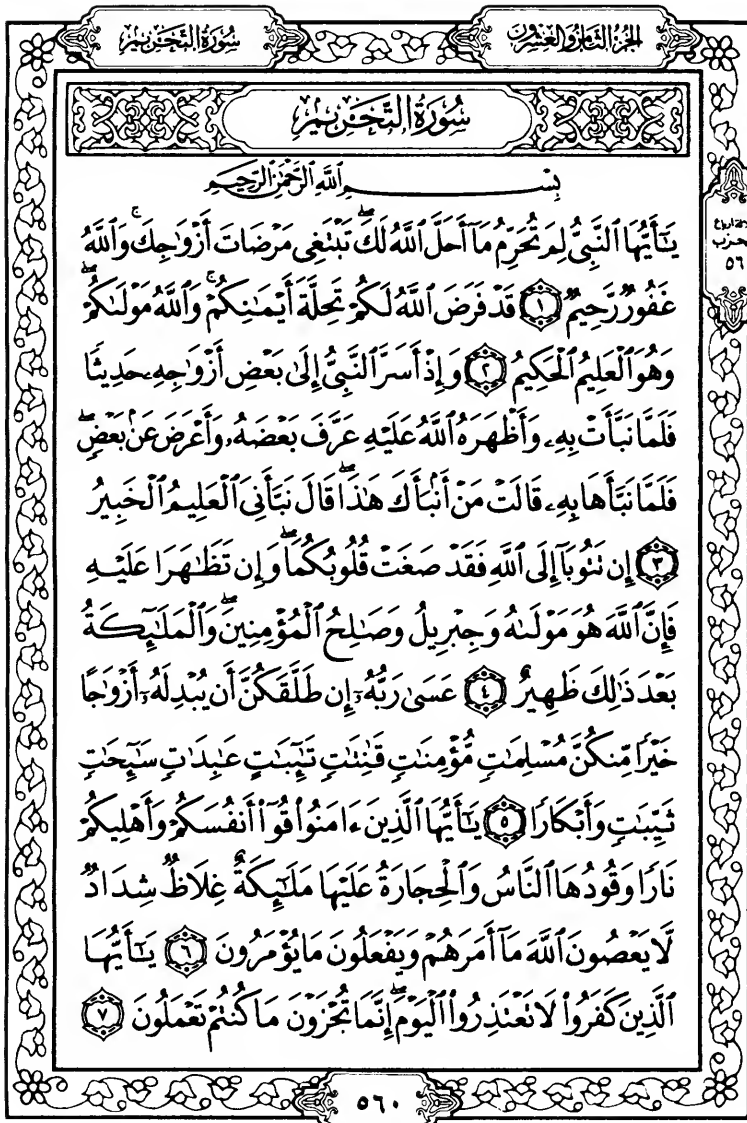 الجزء الثامن والعشرون
سُورَةُ التَّحْرِيمِ
سُورَةُ التَّحْرِيمِ
بِسْمِ ٱللَّهِ ٱلرَّحْمَٰنِ ٱلرَّحِيمِ
يَٰٓأَيُّهَا ٱلنَّبِيُّ لِمَ تُحَرِّمُ مَآ أَحَلَّ ٱللَّهُ لَكَۖ تَبْتَغِي مَرْضَاتَ أَزْوَٰجِكَۚ وَٱللَّهُ
غَفُورٌ رَّحِيمٌ ١ قَدْ فَرَضَ ٱللَّهُ لَكُمْ تَحِلَّةَ أَيْمَٰنِكُمْۚ وَٱللَّهُ مَوْلَىٰكُمْۖ
وَهُوَ ٱلْعَلِيمُ ٱلْحَكِيمُ ٢ وَإِذْ أَسَرَّ ٱلنَّبِيُّ إِلَىٰ بَعْضِ أَزْوَٰجِهِۦ حَدِيثًا
فَلَمَّا نَبَّأَتْ بِهِۦ وَأَظْهَرَهُ ٱللَّهُ عَلَيْهِ عَرَّفَ بَعْضَهُۥ وَأَعْرَضَ عَنۢ بَعْضٍۖ
فَلَمَّا نَبَّأَهَا بِهِۦ قَالَتْ مَنْ أَنۢبَأَكَ هَٰذَاۖ قَالَ نَبَّأَنِيَ ٱلْعَلِيمُ ٱلْخَبِيرُ
٣ إِن تَتُوبَآ إِلَى ٱللَّهِ فَقَدْ صَغَتْ قُلُوبُكُمَاۖ وَإِن تَظَٰهَرَا عَلَيْهِ
فَإِنَّ ٱللَّهَ هُوَ مَوْلَىٰهُ وَجِبْرِيلُ وَصَٰلِحُ ٱلْمُؤْمِنِينَۖ وَٱلْمَلَٰٓئِكَةُ
بَعْدَ ذَٰلِكَ ظَهِيرٌ ٤ عَسَىٰ رَبُّهُۥٓ إِن طَلَّقَكُنَّ أَن يُبْدِلَهُۥٓ أَزْوَٰجًا
خَيْرًا مِّنكُنَّ مُسْلِمَٰتٍ مُّؤْمِنَٰتٍ قَٰنِتَٰتٍ تَٰٓئِبَٰتٍ عَٰبِدَٰتٍ سَٰٓئِحَٰتٍ
ثَيِّبَٰتٍ وَأَبْكَارًا ٥ يَٰٓأَيُّهَا ٱلَّذِينَ ءَامَنُوا۟ قُوٓا۟ أَنفُسَكُمْ وَأَهْلِيكُمْ
نَارًا وَقُودُهَا ٱلنَّاسُ وَٱلْحِجَارَةُ عَلَيْهَا مَلَٰٓئِكَةٌ غِلَاظٌ شِدَادٌ
لَّا يَعْصُونَ ٱللَّهَ مَآ أَمَرَهُمْ وَيَفْعَلُونَ مَا يُؤْمَرُونَ ٦ يَٰٓأَيُّهَا
ٱلَّذِينَ كَفَرُوا۟ لَا تَعْتَذِرُوا۟ ٱلْيَوْمَۖ إِنَّمَا تُجْزَوْنَ مَا كُنتُمْ تَعْمَلُونَ ٧
٥٦
٥٦٠